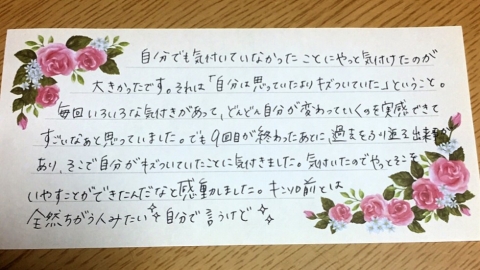 自分でも気付いていなかったことにやっと気付けたのが
大きかったです。それは「自分は思っていたよりキズついていた」ということ。
毎回いろいろな気付きがあって、どんどん自分が変わっていくのを実感できて
すごいなあと思っていました。でも9回目が終わったあとに、過去をふり返る出来事が
あり、そこで自分がキズついていたことに気付きました。気付いたのでやっとそこを
いやすことができたんだなと感動しました。キンソロ前とは
全然ちがう人みたい✨自分で言うけど✨